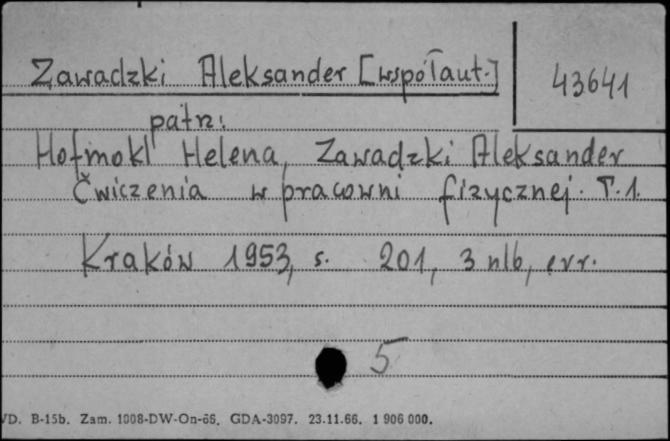 Zawadzki Aleksander [współaut.]
43641
patrz:
Hofmokl Helena, Zawadzki Aleksander
Ćwiczenia w pracowni fizycznej. T. 1.
Kraków 1953, s. 201, 3 nlb, err.
5
VD. B-15b. Zam. 1008-DW-On-66. GDA-3097. 23.11.66. 1 906 000.